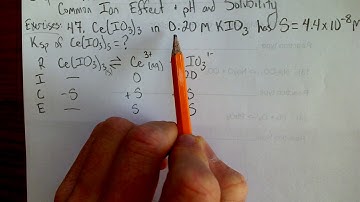 Common Ion Effect + pH and Solubility
Exercises: 47. Ce(IO₃)₃ in 0.20 M KIO₃ has S = 4.4 x 10⁻⁸ M
Ksp of Ce(IO₃)₃ = ?
R Ce(IO₃)₃ ⇌ Ce³⁺(aq) IO₃¹⁻
I — 0
C -S +S
E — S S